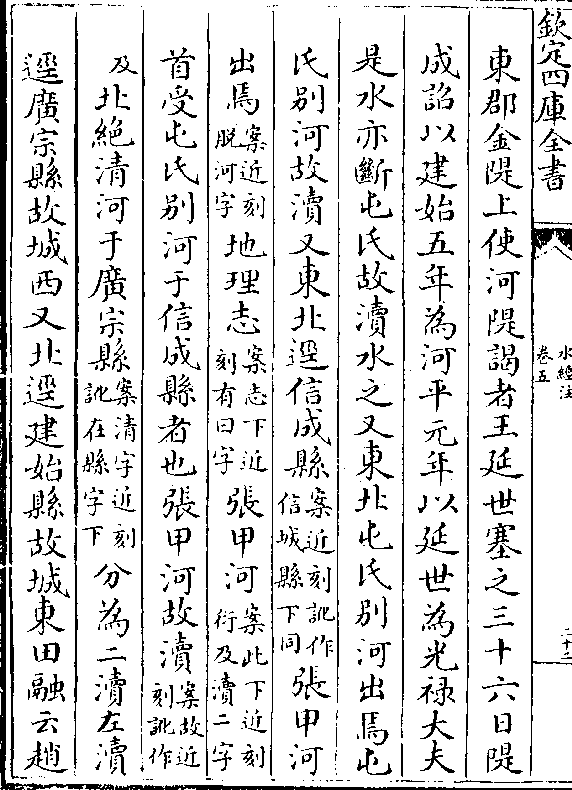 欽定四庫全書
水經注
卷五
二十二
東郡金隄上使河隄謁者王延世塞之三十六日隄
成詔以建始五年為河平元年以延世為光禄大夫
是水亦斷屯氏故瀆水之又東北屯氏别河出焉屯
氏别河故瀆又東北逕信成縣案近刻訛作信城縣下同張甲河
出焉案近刻脱河字地理志案志下近刻有曰字張甲河案此下近刻衍及瀆二字
首受屯氏别河于信成縣者也張甲河故瀆案故近刻訛作
及北絶清河于廣宗縣案清字近刻訛在縣字下分為二瀆左瀆
逕廣宗縣故城西又北逕建始縣故城東田融云趙